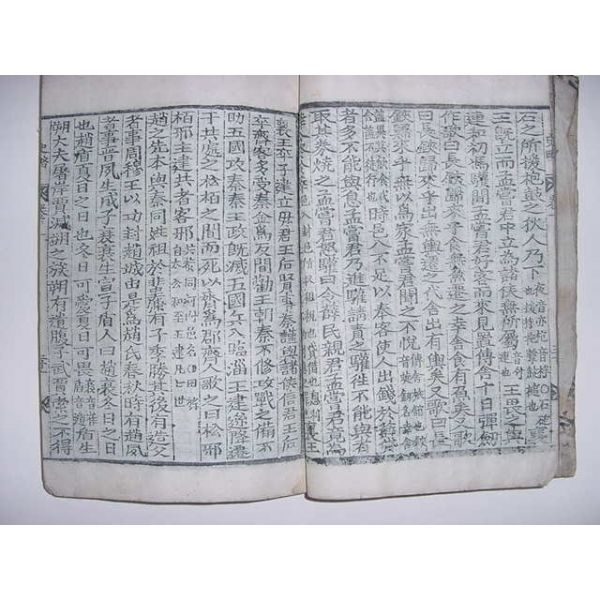 石之所援枹鼓之狄人乃下
王旣立而孟嘗君中立爲諸侯無所屬王畏之與
連和初馮驩聞孟嘗君好客而來見置傳舍十日彈劍
作歌曰長鋏歸來乎食無魚遷之幸舍食有魚矣又歌
曰長鋏歸來乎出無輿遷之代舍出有輿矣又歌曰長
鋏歸來乎無以爲家孟嘗君不悅
時邑入不足以奉客使人出錢於薛
者多不能與息孟嘗君乃進驩請責之驩往不能與者
取其券燒之孟嘗君怒驩曰令薛民親君孟嘗君竟爲
襄王卒子建立母君王后賢事秦謹與諸侯信君王后
卒齊客多受秦金爲反間勸王朝秦不修攻戰之備不
助五國攻秦秦王政旣滅五國兵入臨淄王建遂降遷
于共處之松柏之間而死以齊爲郡齊人歌之曰松耶
柏耶住建共者客耶
趙之先本與秦同姓祖於蜚廉有子季勝其後有造父
者事周穆王以功封趙城由是爲趙氏春秋時有趙夙
者事晉夙生成子衰衰生宣子盾人曰趙衰冬日之日
也趙盾夏日之日也冬日可愛夏日可畏盾生
朔大夫屠岸賈滅朔之族朔有遺腹子武賈索之不得